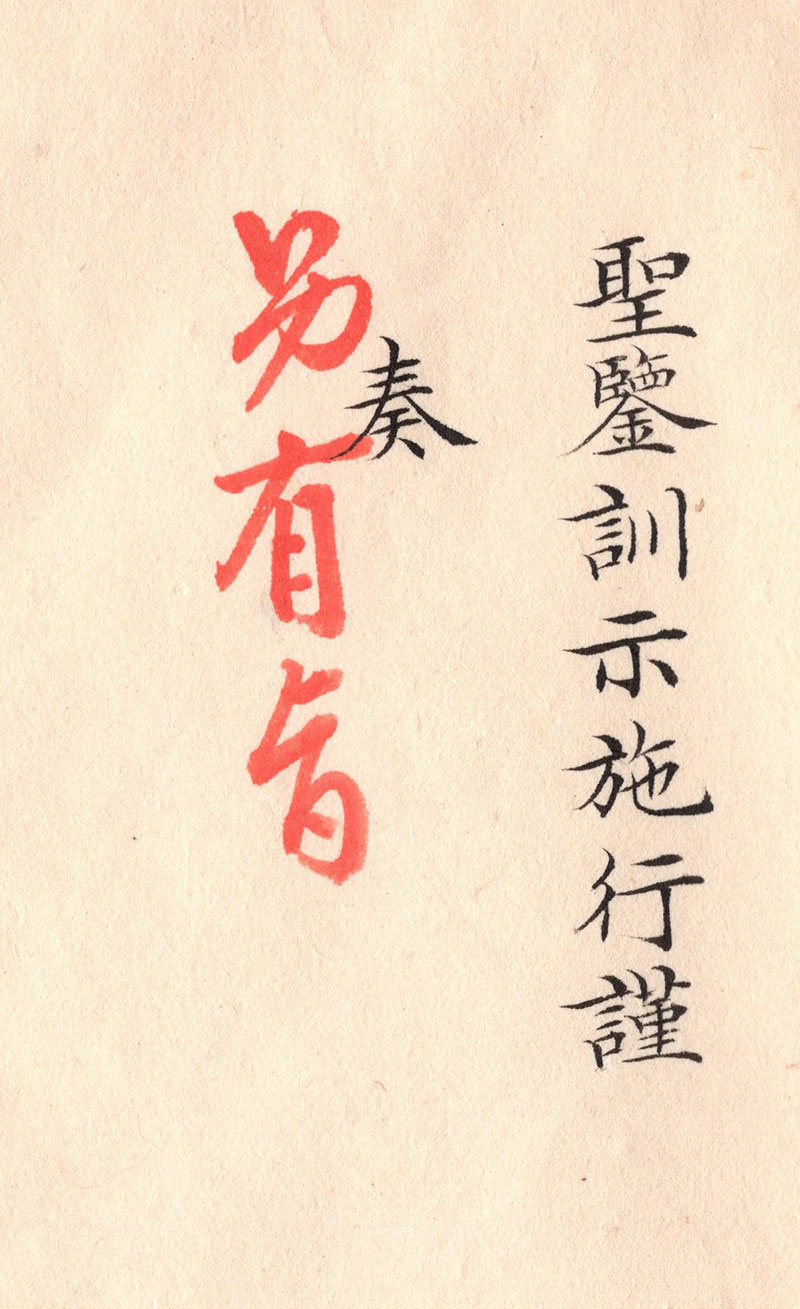 聖鑒訓示施行謹
奏
另有旨